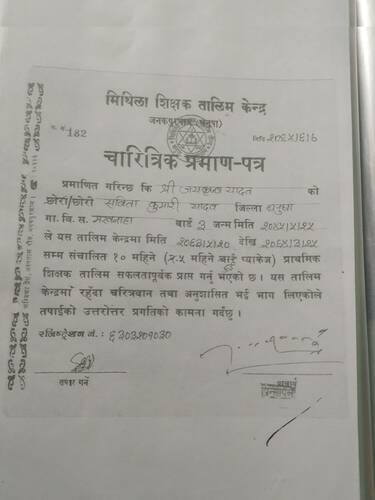 मिथिला शिक्षक तालिम केन्द्र
जनकपुरधाम (धनुषा)
च. नं. 182
मिति: २०६५।६।६
चारित्रिक प्रमाण-पत्र
प्रमाणित गरिन्छ कि श्री जयकृष्ण यादव को
छोरा/छोरी सबिता कुमारी यादव जिल्ला धनुषा
गा. बि. स. वार्ड ३ जन्म मिति
ले यस तालिम केन्द्रमा मिति २०६३।५।२० देखि
सम्म संचालित १० महिने (२.५ महिने प्याकेज) प्राथमिक
शिक्षक तालिम सफलतापूर्वक प्राप्त गर्नु भएको छ । यस तालिम
केन्द्रमा रहँदा चरित्रवान तथा अनुशासित भई भाग लिएकोले
तपाईको उत्तरोत्तर प्रगतिको कामना गर्दछु ।
रजिष्ट्रेशन नं. : ६३०३२०९०३०
तयार गर्ने
प्राचार्य